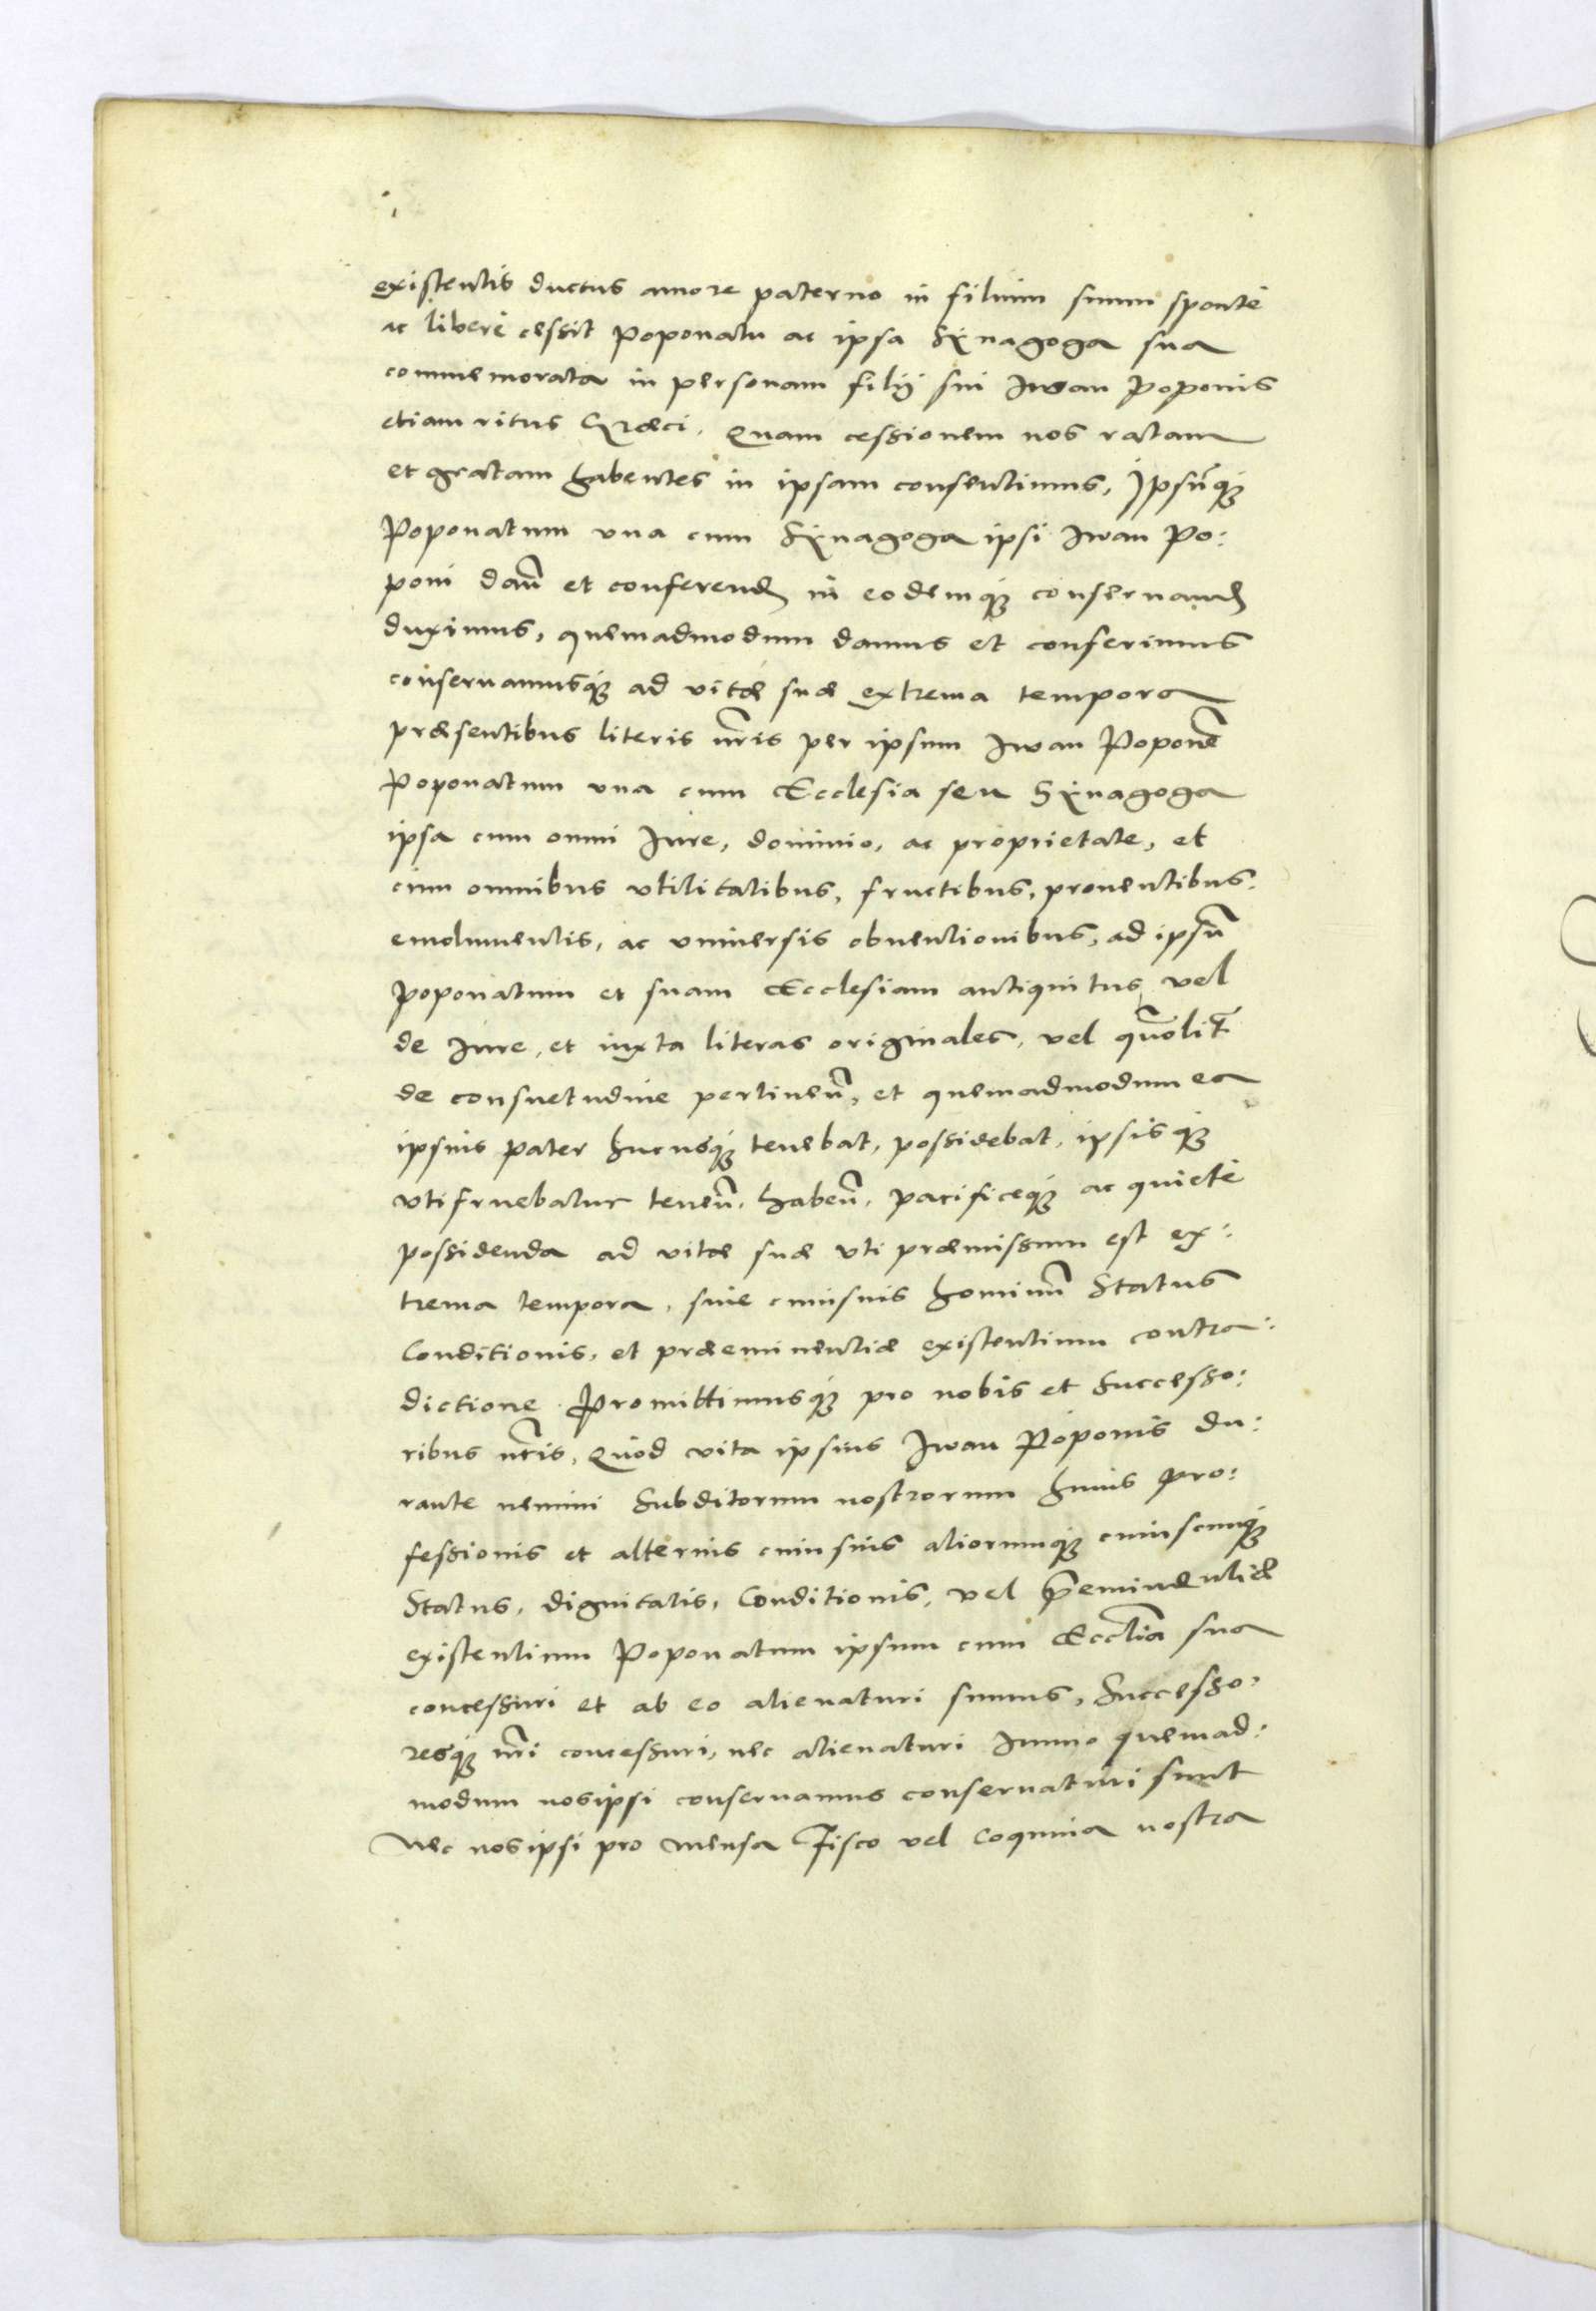 existentis ductus amore paterno in filium suum sponte
ac liberè cessit Poponatu ac ipsa Sÿnagoga sua
commemorata in personam filÿ sui Iwan Poponis
etiam ritus Græci. Quam cessionem nos ratam
et gratam habentes in ipsam consentimus, Ipsũq́ꝫ
Poponatum vna cum Sÿnagoga ipsi Iwan Po:
poni dañ et conferend in eodemq́ꝫ conseruand
duximus, quemadmodum damus et conferimus
conseruamusq́ꝫ ad vitæ suæ extrema tempora
præsentibus literis nr̃is per ipsum Iwan Poponẽ
Poponatum vna cum Ecclesia seu Sÿnagoga
ipsa cum omni Iure, dominio, ac proprietate, et
cum omnibus vtilitatibus, fructibus, prouentibus,
emolumentis, ac vniuersis obuentionibus, ad ipsũ
Poponatum et suam Ecclesiam antiquitus vel
de Iure, et iuxta literas originales, vel quõlit
de consuetudine pertineñ, et quemadmodum ea
ipsius pater hucusq́ꝫ tenebat, possidebat, ipsisq́ꝫ
vtifruebatur teneñ, habeñ, pacificeq́ꝫ ac quietè
possidenda ad vitæ suæ vti præmissum est ex:
trema tempora, siue cuiusuis hominũ Status
Conditionis, et præeminentiæ existentium contra:
dictione. Promittimusq́ꝫ pro nobis et Successo:
ribus nr̃is, Quod vita ipsius Iwan Poponis du:
rante nemini Subditorum nostrorum huius Pro:
fessionis et alterius cuiusuis aliorumq́ꝫ cuiuscumq́ꝫ
Status, dignitatis, Conditionis, vel p̃eminentiæ
existentium Poponatum ipsum cum Eccl̃ia sua
concessuri et ab eo alienaturi sumus, Successo:
resq́ꝫ nr̃i concessuri, nec alienaturi Immo quemad:
modum nosipsi conseruamus conseruaturi sunt
Nec nosipsi pro Mensa Fisco vel Coquina nostra